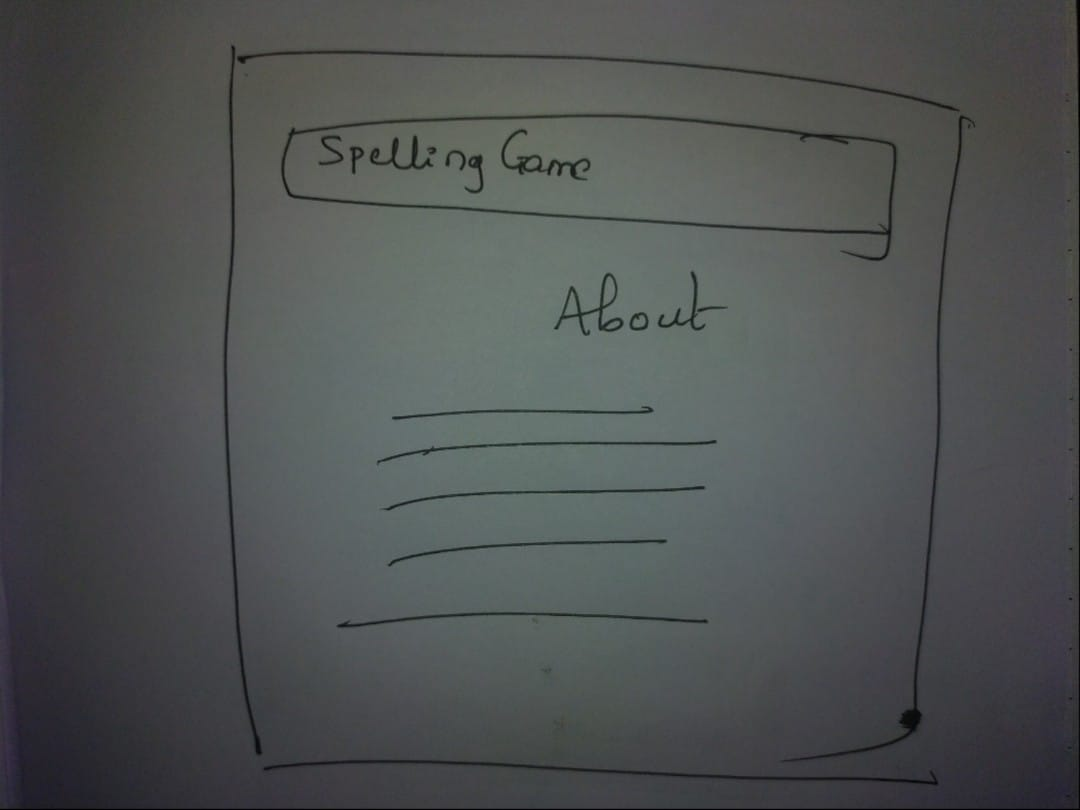 Spelling Game
About